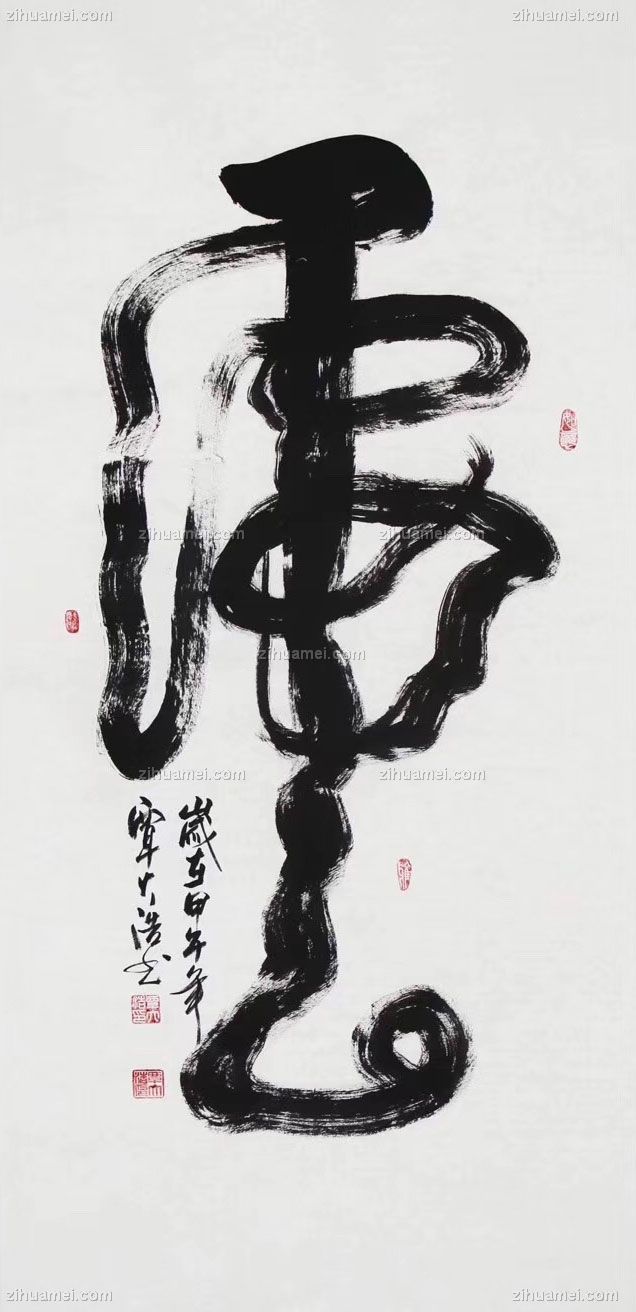 zihuamei.com zihuamei.com
虎
歲在甲午年
覃大浩书
zihuamei.com zihuamei.com
zihuamei.com
zihuamei.com zihuamei.com
zihuamei.com zihuamei.com